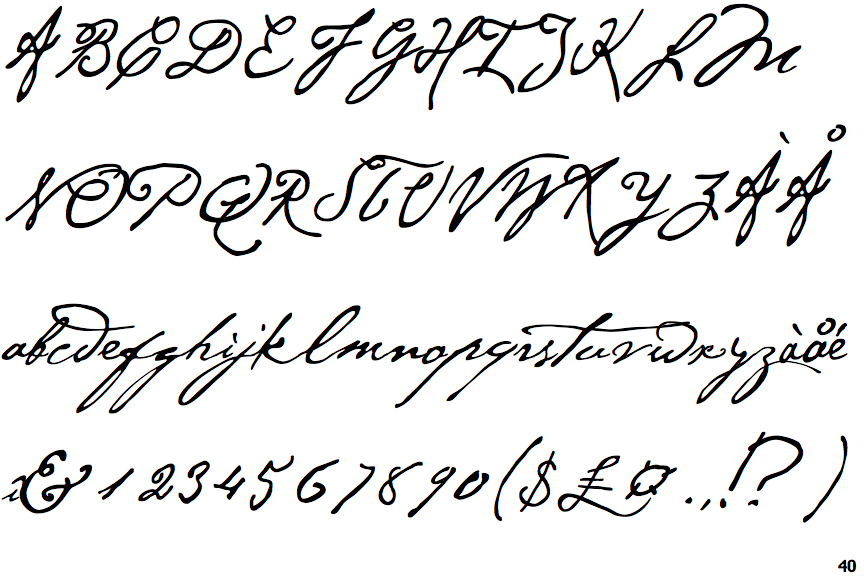 ABCDEFGHIJKLM
NOPQRSTUVWXYZÀÅ
abcdefghijklmnopqrstuvwxyzàåé
&1234567890($£¤.,,!?)
40